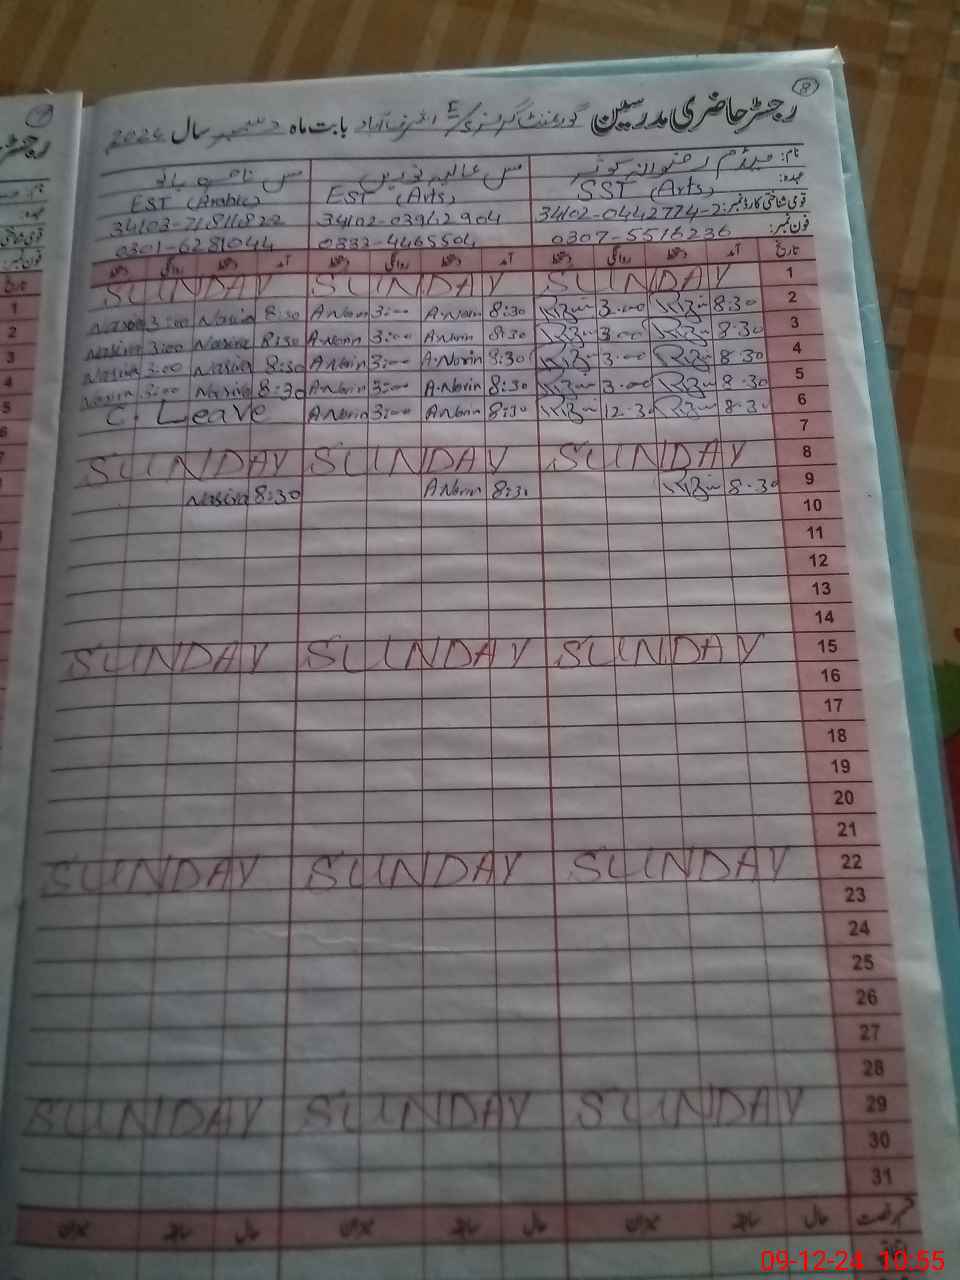 8
رجسٹر حاضری مدرسین گورنمنٹ گرلز E/S اشرف آباد بابت ماہ دسمبر سال 2024
نام: میڈم رضوانہ کوثر مس عالیہ نورین مس ناصرہ بانو
عہدہ: SST (Arts) EST (Arts) EST (Arabic)
قومی شناختی کارڈ نمبر: 34102-0442774-2 34102-03942904 34103-71811822
فون نمبر: 0307-5516236 0333-4465504 0301-6281044
تاریخ آمد دستخط روانگی دستخط آمد دستخط روانگی دستخط آمد دستخط روانگی دستخط
SUNDAY SUNDAY SUNDAY 1
Nasira 3:00 Nasira 8:30 A.Norin 3:00 A.Norin 8:30 3:00 8:30 2
Nasira 3:00 Nasira 8:30 A.Norin 3:00 A.Norin 8:30 3:00 8:30 3
Nasira 3:00 Nasira 8:30 A.Norin 3:00 A.Norin 8:30 3:00 8:30 4
Nasira 3:00 Nasira 8:30 A.Norin 3:00 A.Norin 8:30 3:00 8:30 5
C. Leave A.Norin 3:00 A.Norin 8:30 12:30 8:30 6
7
SUNDAY SUNDAY SUNDAY 8
Nasira 8:30 A.Norin 8:30 8:30 9
10
11
12
13
14
SUNDAY SUNDAY SUNDAY 15
16
17
18
19
20
21
SUNDAY SUNDAY SUNDAY 22
23
24
25
26
27
28
SUNDAY SUNDAY SUNDAY 29
30
31
حال سابقہ میزان حال سابقہ میزان حال سابقہ میزان
09-12-24 10:55